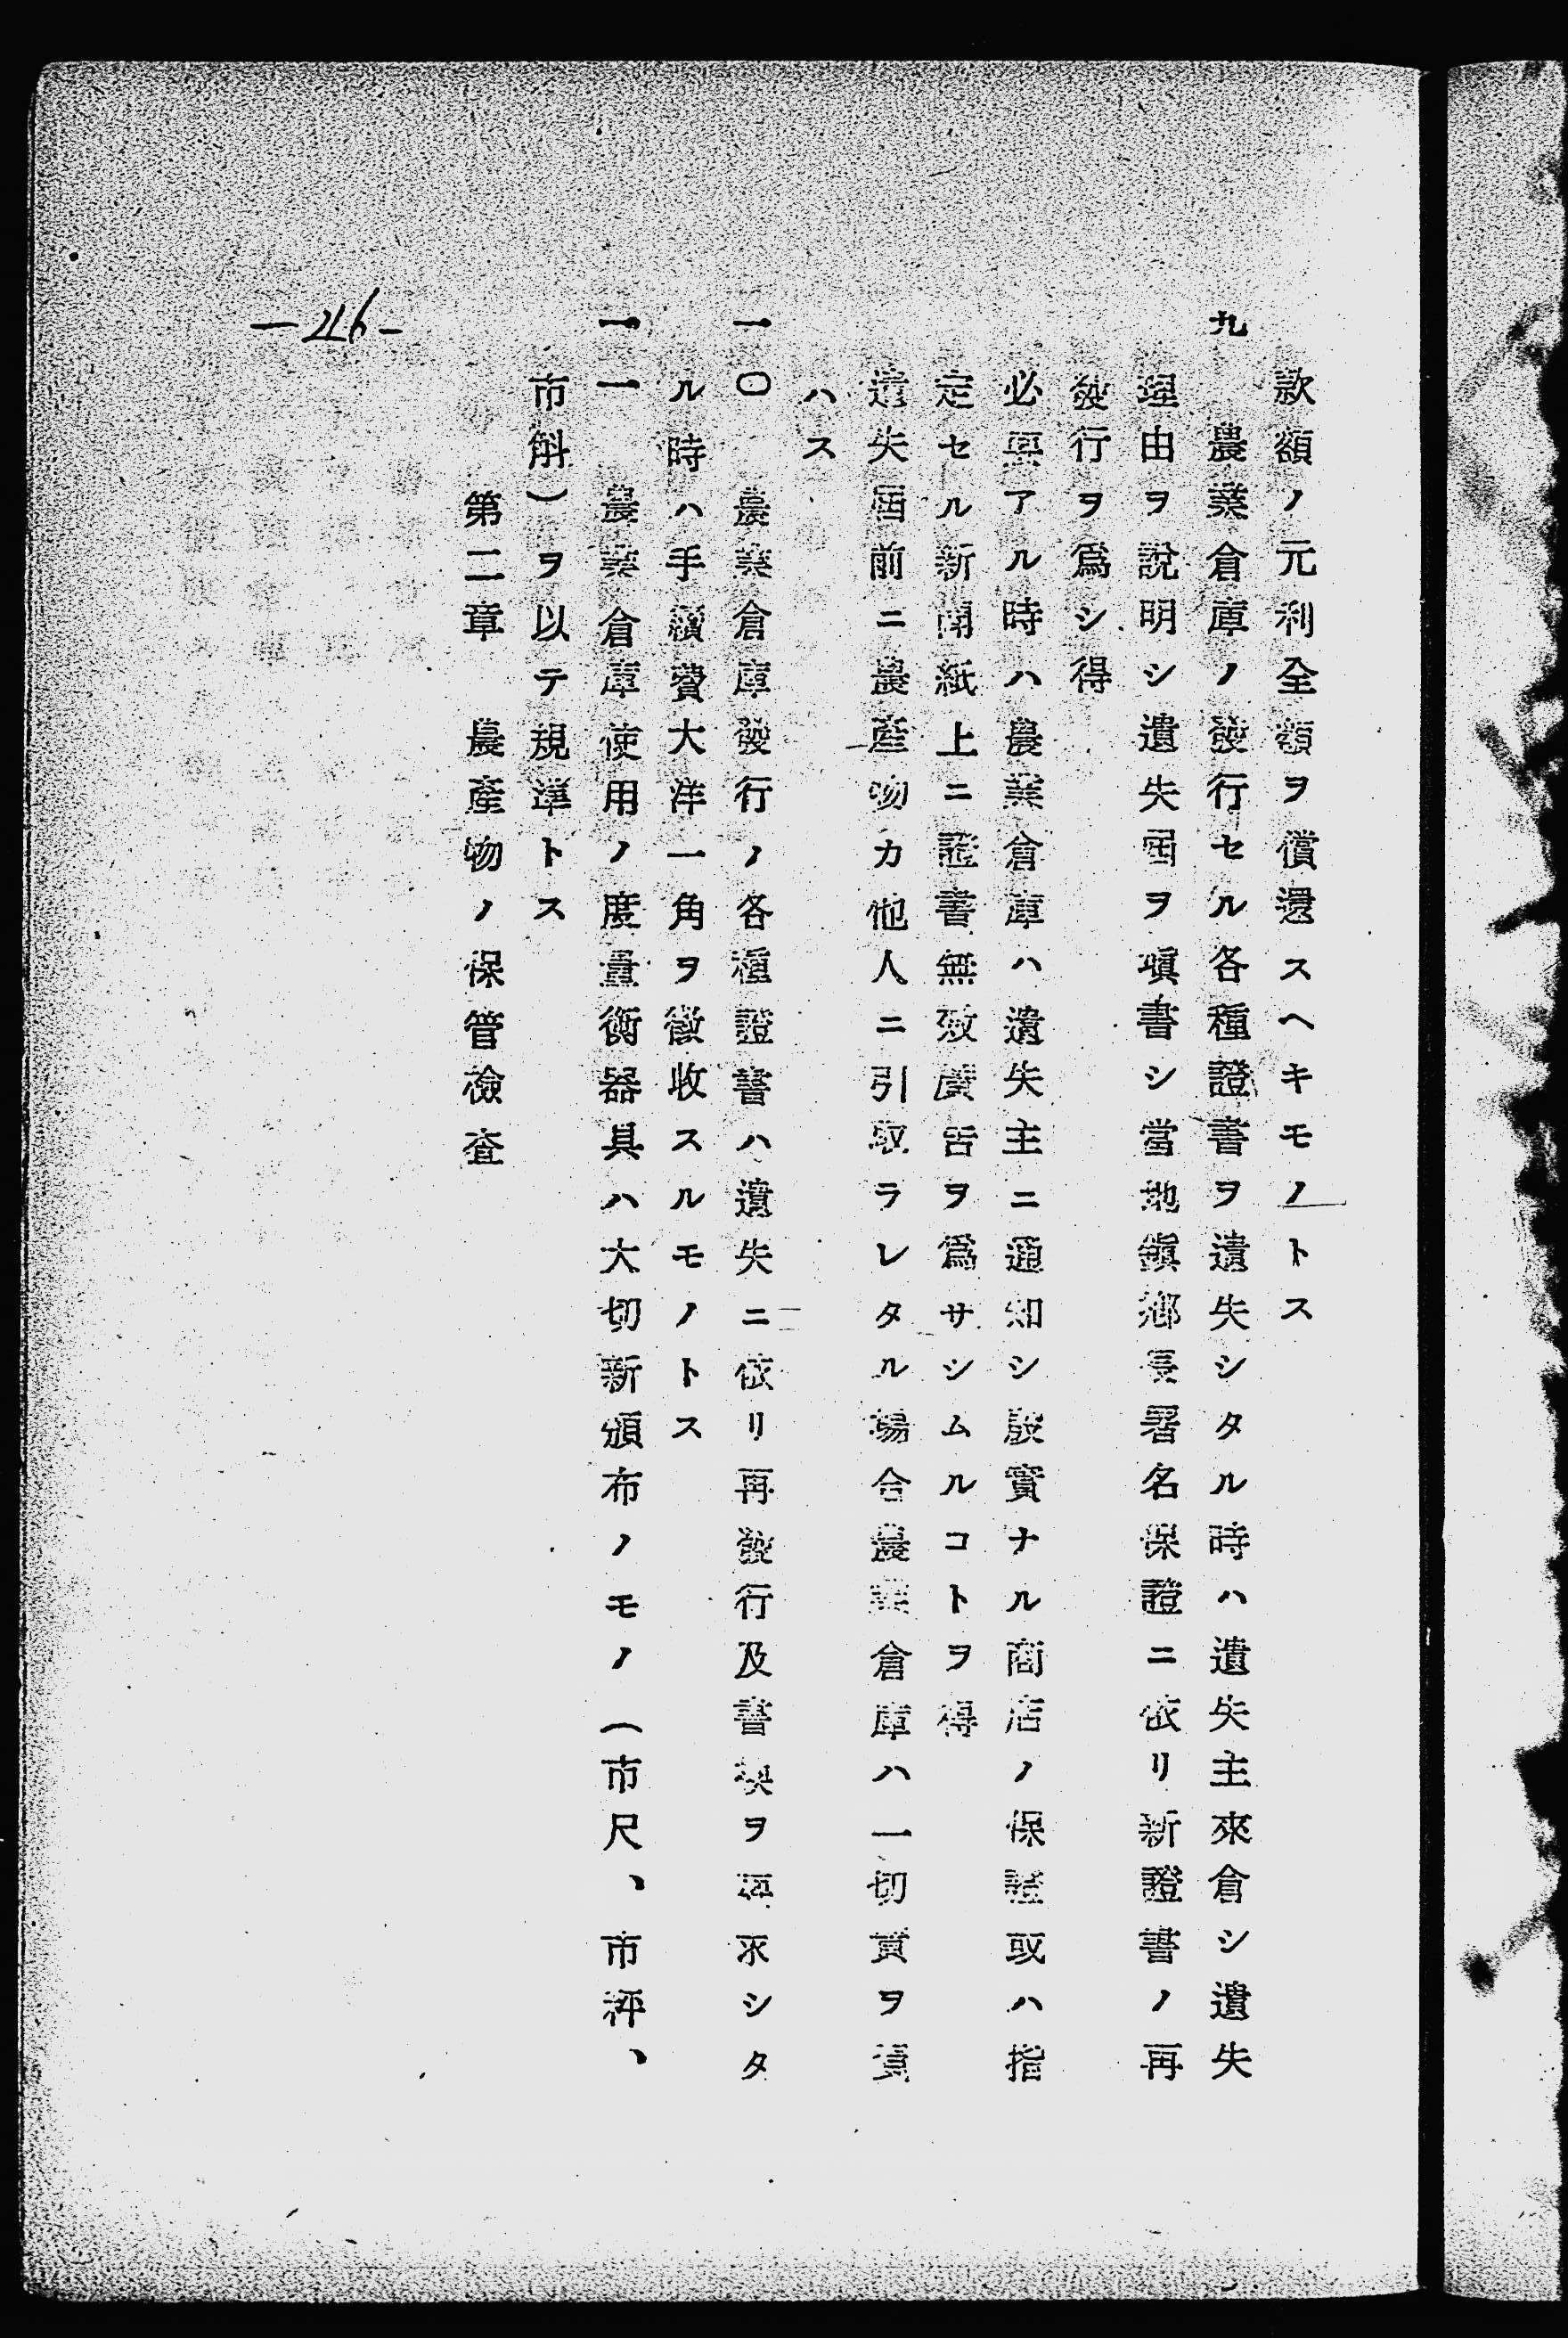 款額ノ元利全額ヲ償還スヘキモノトス
九　農業倉庫ノ發行セル各種證書ヲ遺失シタル時ハ遺失主來倉シ遺失
理由ヲ說明シ遺失屆ヲ塡書シ當地鎭鄕長署名保證ニ依リ新證書ノ再
發行ヲ爲シ得
必要アル時ハ農業倉庫ハ遺失主ニ通知シ殷實ナル商店ノ保證或ハ指
定セル新聞紙上ニ證書無效廣吿ヲ爲サシムルコトヲ得
遺失屆前ニ農產物カ他人ニ引取ラレタル場合農業倉庫ハ一切責ヲ負
ハス
一〇　農業倉庫發行ノ各種證書ハ遺失ニ依リ再發行及書換ヲ要求シタ
ル時ハ手續費大洋一角ヲ徵收スルモノトス
一一　農業倉庫使用ノ度量衡器具ハ大切新頒布ノモノ（市尺、市秤、
市斛）ヲ以テ規準トス
第二章　農產物ノ保管檢査
—46—